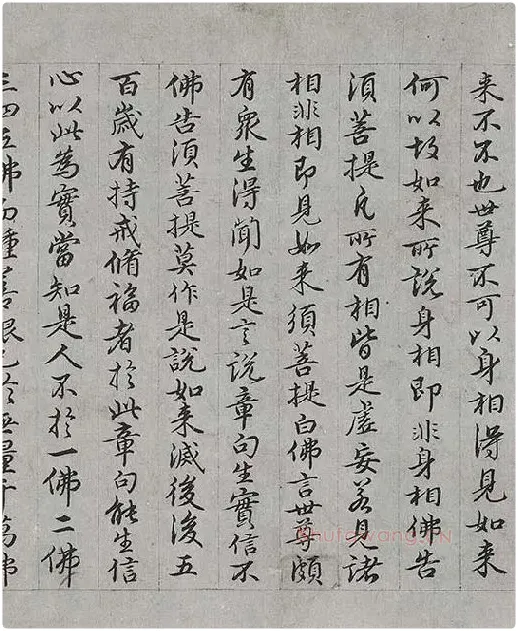 来不不也世尊不可以身相得見如来
何以故如来所說身相即非身相佛告
須菩提凡所有相皆是虛妄若見諸
相非相即見如来須菩提白佛言世尊頗
有衆生得聞如是言說章句生實信不
佛告須菩提莫作是說如来滅後後五
百歲有持戒脩福者於此章句能生信
心以此為實當知是人不於一佛二佛
三四五佛而種善根已於無量千萬佛
Shufawang.CN